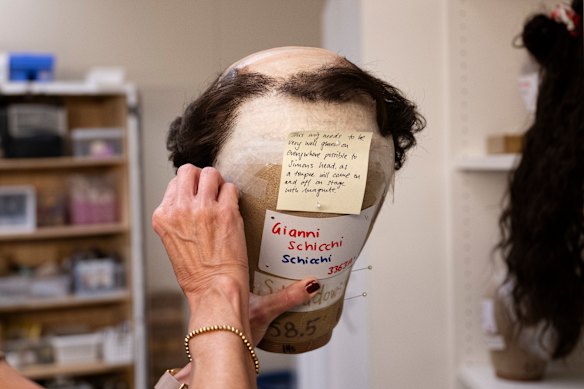 This wig needs to be
very well glued on
everywhere possible to
Simon's head, as
a toupee will come on
and off on stage
with magnets.
Gianni
Schicchi
Schicchi
3367
58.5